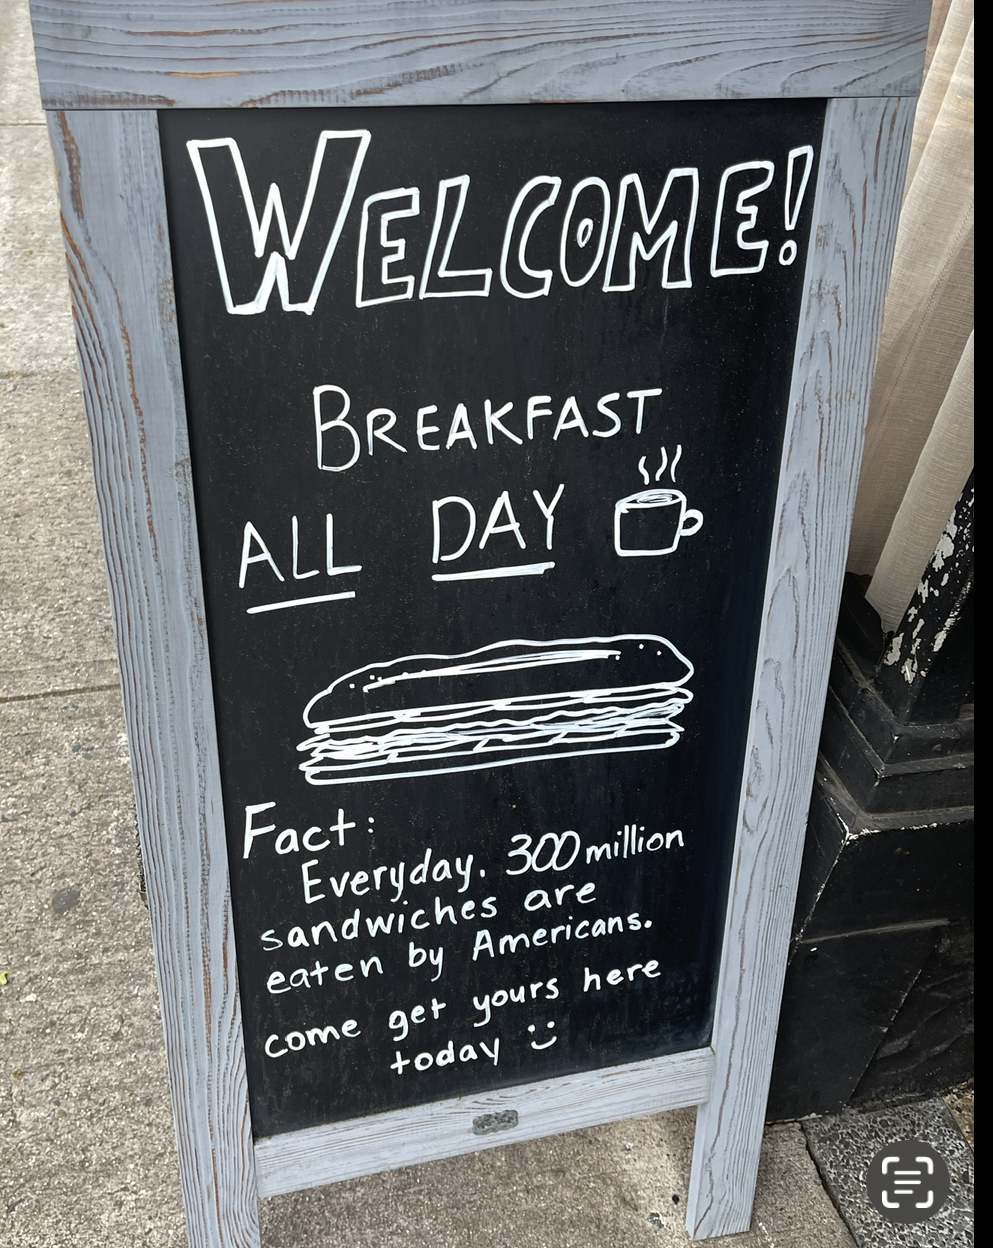 WELCOME!
BREAKFAST
ALL DAY
Fact:
Everyday, 300 million
sandwiches are
eaten by Americans.
come get yours here
today